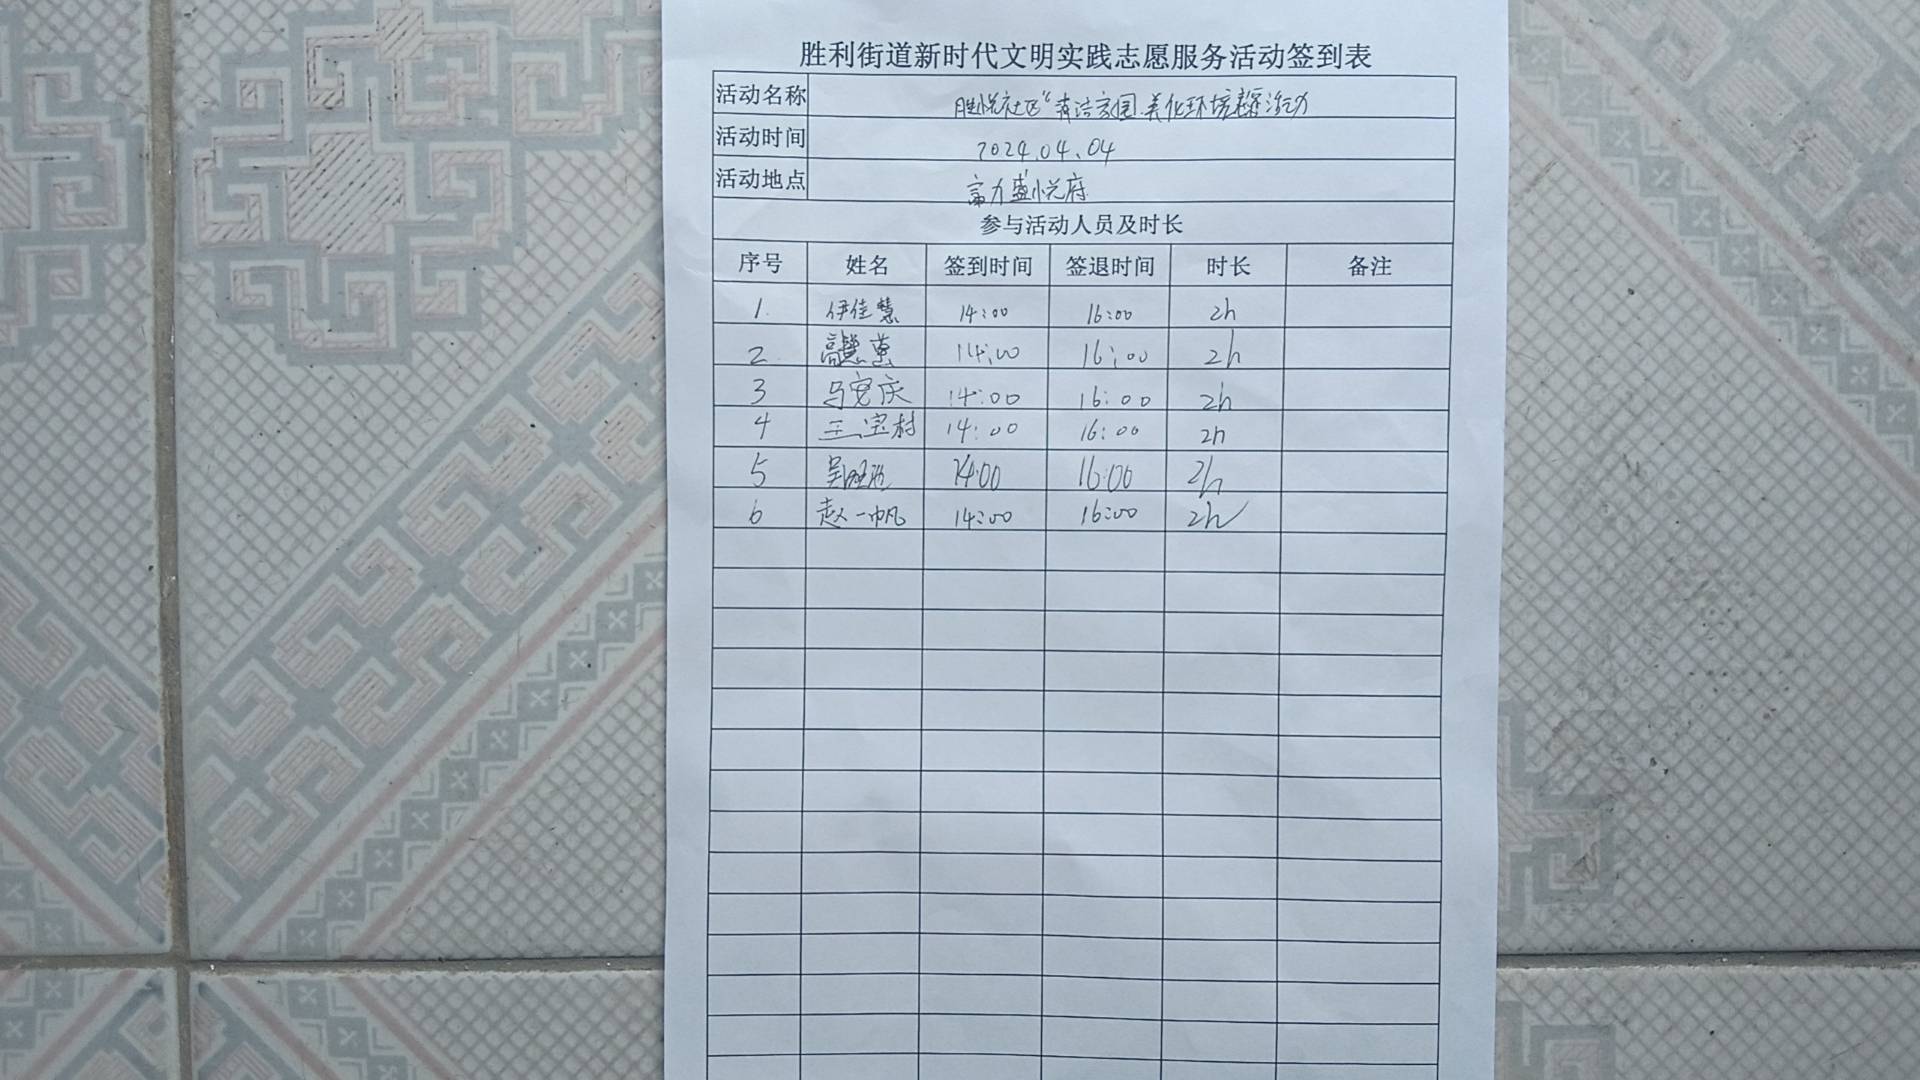 胜利街道新时代文明实践志愿服务活动签到表
活动名称 胜悦社区“清洁家园 美化环境 添活力
活动时间 2024.04.04
活动地点 富力盛悦府
参与活动人员及时长
序号 姓名 签到时间 签退时间 时长 备注
1. 伊佳慧 14:00 16:00 2h
2. 高慧 14:00 16:00 2h
3 马宽庆 14:00 16:00 2h
4 王宝村 14:00 16:00 2h
5 吴 14:00 16:00 2h
6 赵一帆 14:00 16:00 2h